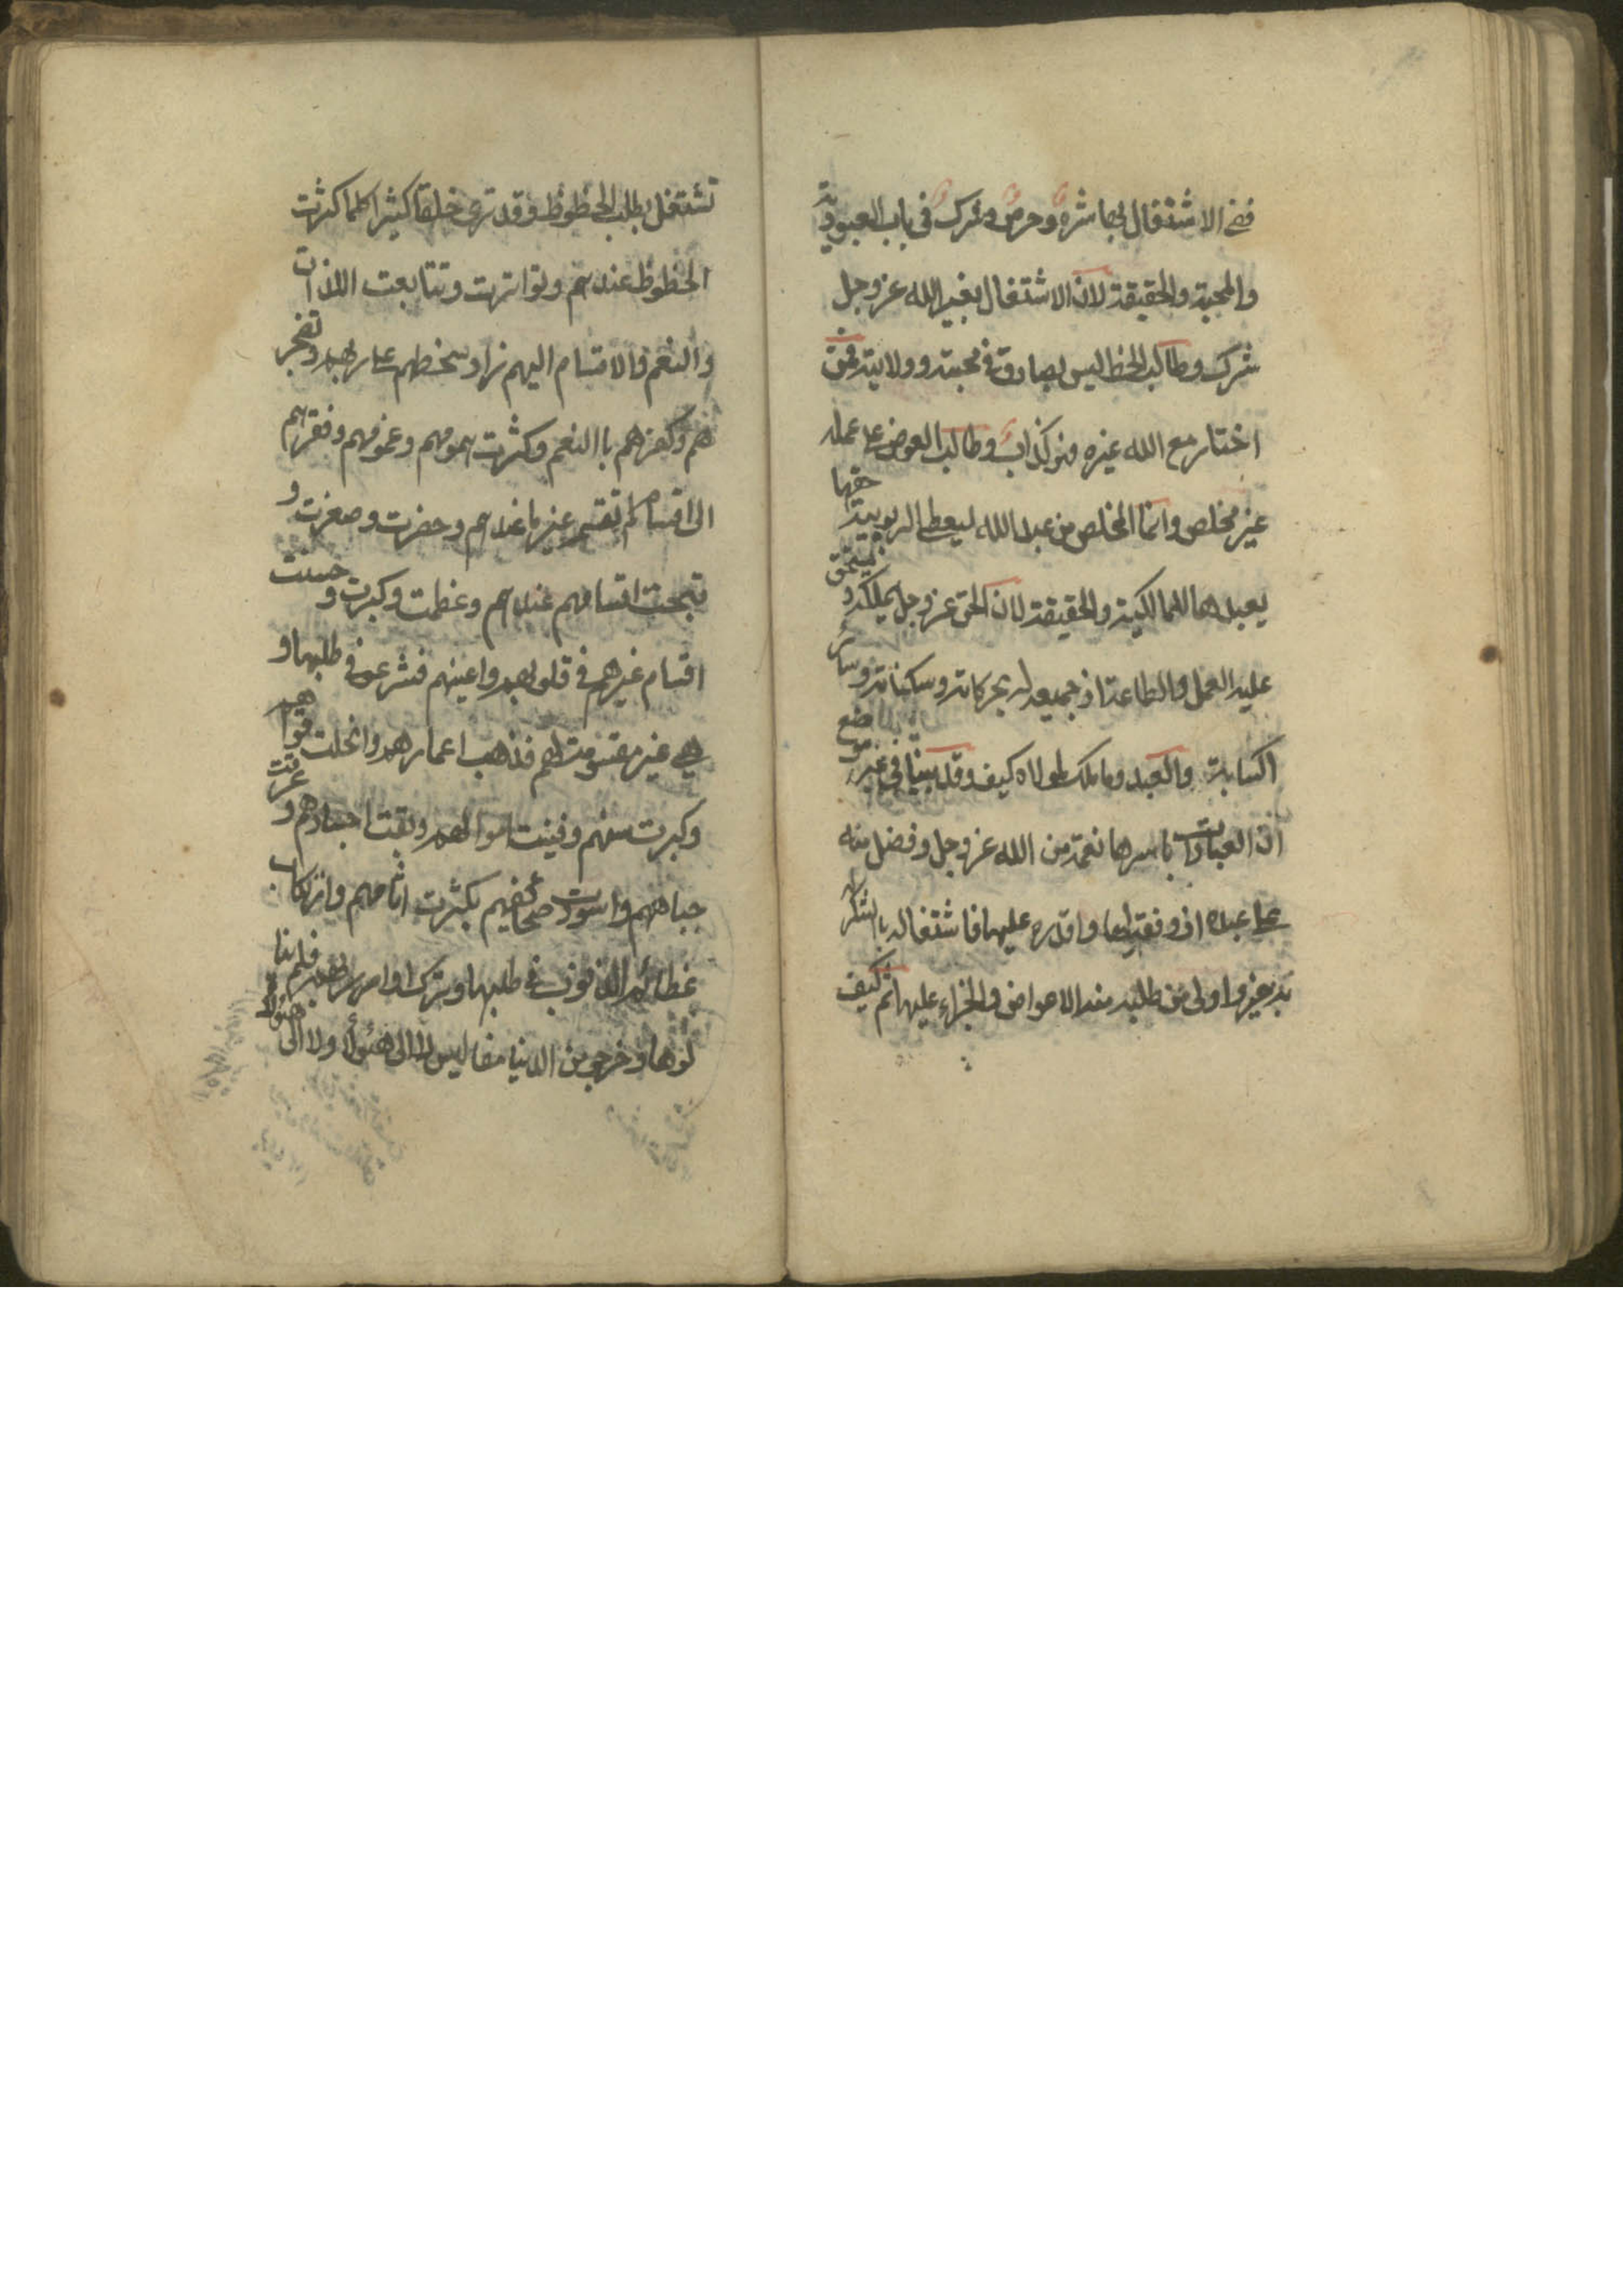 ففي الاشتغال بها شره وحرص وشرك في باب العبودية
والمحبة والحقيقة لان الاشتغال بغير الله عز وجل
شرك وطالب الحظ ليس بصادق في محبته وولايته فمن
اختار مع الله غيره فهو كذاب وطالب العوض على عمله
غير مخلص وانما المخلص من عبد الله ليعطي الربوبية حقها
يعبدها للمالكية والحقيقة لان الحق عز وجل يملكه ويستحق
عليه العمل والطاعة اذ جميعه له بحركاته وسكناته وسائر
اكسابه والعبد وما ملك لمولاه كيف وقد بينا في غير موضع
ان العبادات باسرها نعمة من الله عز وجل وفضل منه
على عبده اذ وفقه لها واقدره عليها فاشتغاله بالشكر
لربه خير واولى من طلبه منه الاعواض والجزاء عليها ثم كيف
تشتغل بطلب الحظوظ وقد ترى خلقا كثيرا كلما كثرت
الحظوظ عندهم وتواترت وتتابعت اللذات
والنعم والاقسام اليهم زاد سخطهم على ربهم وتضجر
هم وكفرهم باالنعم وكثرت همومهم وغمومهم وفقرهم
الى اقسام لم تقسم غير ما عندهم وحضرت وصغرت و
قبحت اقسامهم عندهم وعظمت وكبرت وحسنت
اقسام غيرهم في قلوبهم واعينهم فشرعوا في طلبها و
هي غير مقسومة لهم فذهب اعمارهم وانحلت قواهم
وكبرت سنهم وفنيت اموالهم وتعبت اجسادهم وعرقت
جباههم واسودت صحائفهم بكثرت اثامهم وارتكاب
عظائم الذنوب في طلبها وترك اوامر ربهم فلم ينا
لوها وخرجوا من الدنيا مفاليس لا الى هؤلاء ولا الى هؤلاء